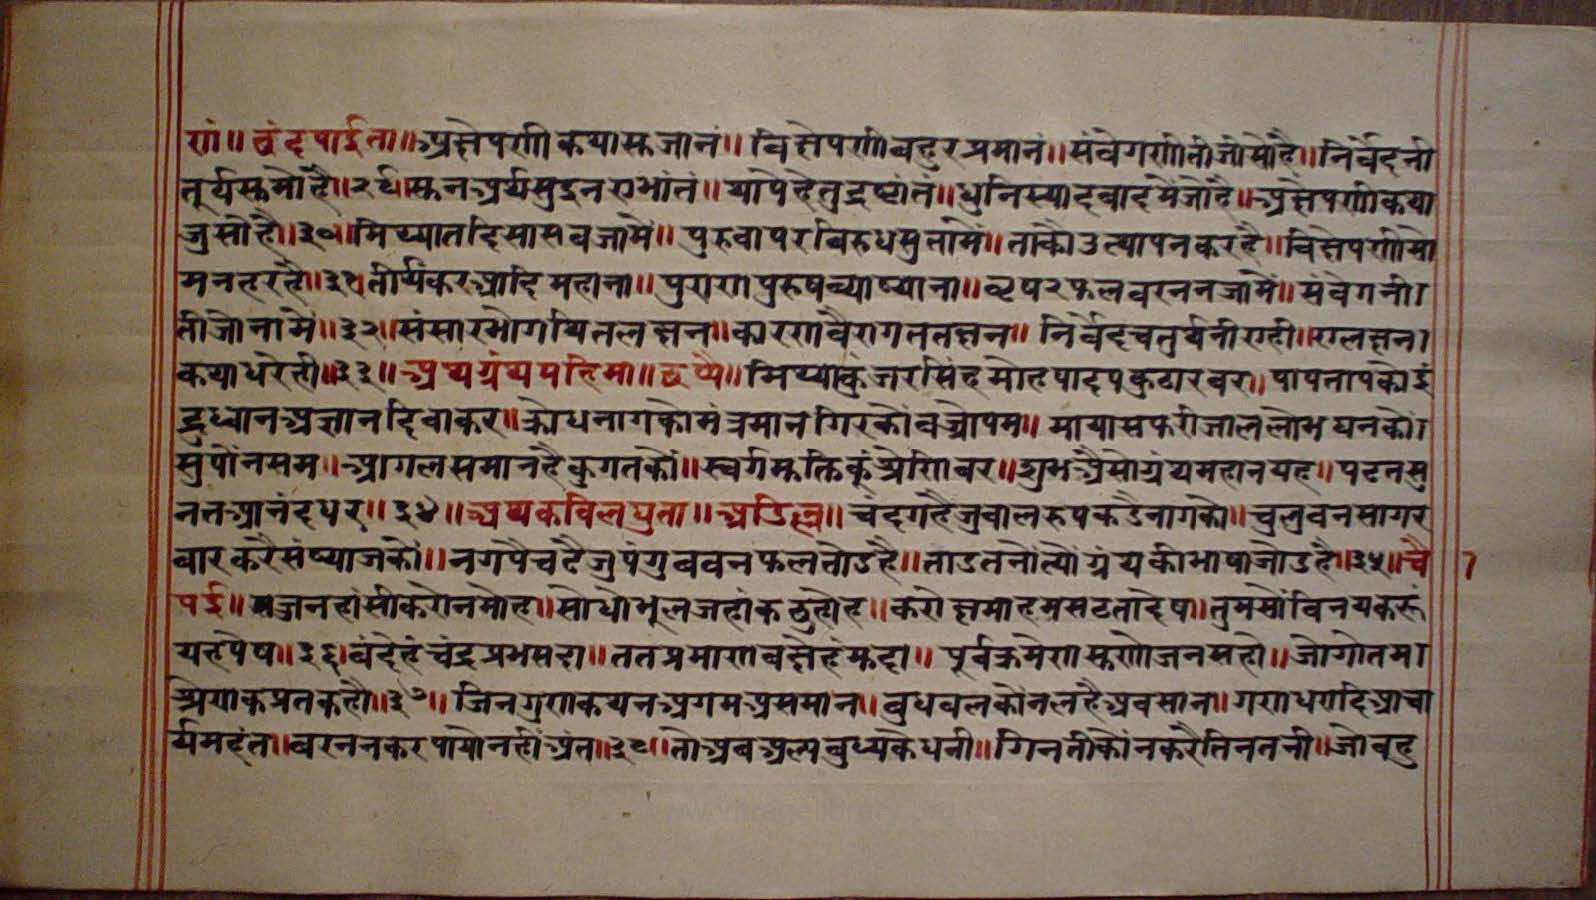 णं॥ छंद पाईता॥ आक्षेपणी कथास्क जानं॥ विक्षेपणी बहुर प्रमानं॥ संवेगणी तीजी सोहै॥ निर्वेदनी
तूर्यस्क मोहै॥२९॥ स्कन अर्थ सुदन रु भांतं॥ यापे हेतु द्रष्टांतं॥ धुनि स्यादवाद मै जोहै॥ आक्षेपणी कथा
जु सोहै॥३०॥ मिथ्यात दिसा सब जामै॥ पुरुवापर विरुध सु तामै॥ ताकौ उत्थापन कर है॥ विक्षेपणी सो
मन हर है॥३१॥ तीर्थंकर आदि महाना॥ पुराण पुरुष व्याष्याना॥ वृष फल वरनन जामै॥ संवेगनी।
तीजो नामै॥३२॥ संसार भोग थित लक्षन॥ कारण वैराग ततक्षन॥ निर्वेद चतुर्थनी एही॥ लक्षन।
कथा धरे ही॥३३॥ अथ ग्रंथ महिमा॥ छप्पै॥ मिथ्या कुंजर सिंह मोह पादप कुठार वर॥ पाप ताप कों इं
दु ध्वान अज्ञान दिवाकर॥ क्रोध नाग कों मंत्र मान गिर कों वज्रोपम॥ माया सफरी जाल लोभ घन कों।
सु पोंन सम॥ आगल समान है कुगत कों॥ स्वर्ग मुक्ति कूं श्रेणि वर॥ शुभ अैसो ग्रंथ महान यह॥ पठन सु
नत आनंद धर॥३४॥ अथ कवि लघुता॥ अडिल्ल॥ चंद गहै जु बाल रुप कडै नाग कों॥ चुलुवन सागर
वार करै संष्या ज कों॥ नग पै चढै जु पंगु व वन फल तोड है॥ ताउ तनो त्यों ग्रंथ की भाषा जोउ है॥३५॥ चै
पई॥ जन हांसी करो न मोह॥ सोधो भूल जहां कछु होह॥ करो क्षमा हम सठता देष॥ तुम सों विनय करूं
यह पेष॥३६॥ वंदेहं चंद्रप्रभ सदा॥ तत प्रमाण वक्षेहं मुदा॥ पूर्व क्रमेण स्कणो जन सही॥ जो गोतम।
श्रेणक प्रत कही॥३७॥ जिन गुण कथन अगम असमान॥ वुध वल कों न लहै अवसान॥ गणधरादि आचा
र्य महंत॥ वरनन कर पायो नहीं अंत॥३८॥ तो अब अल्प वुध्य के धनी॥ गिनती कों न करै तिन तनी॥ जो वहु
7